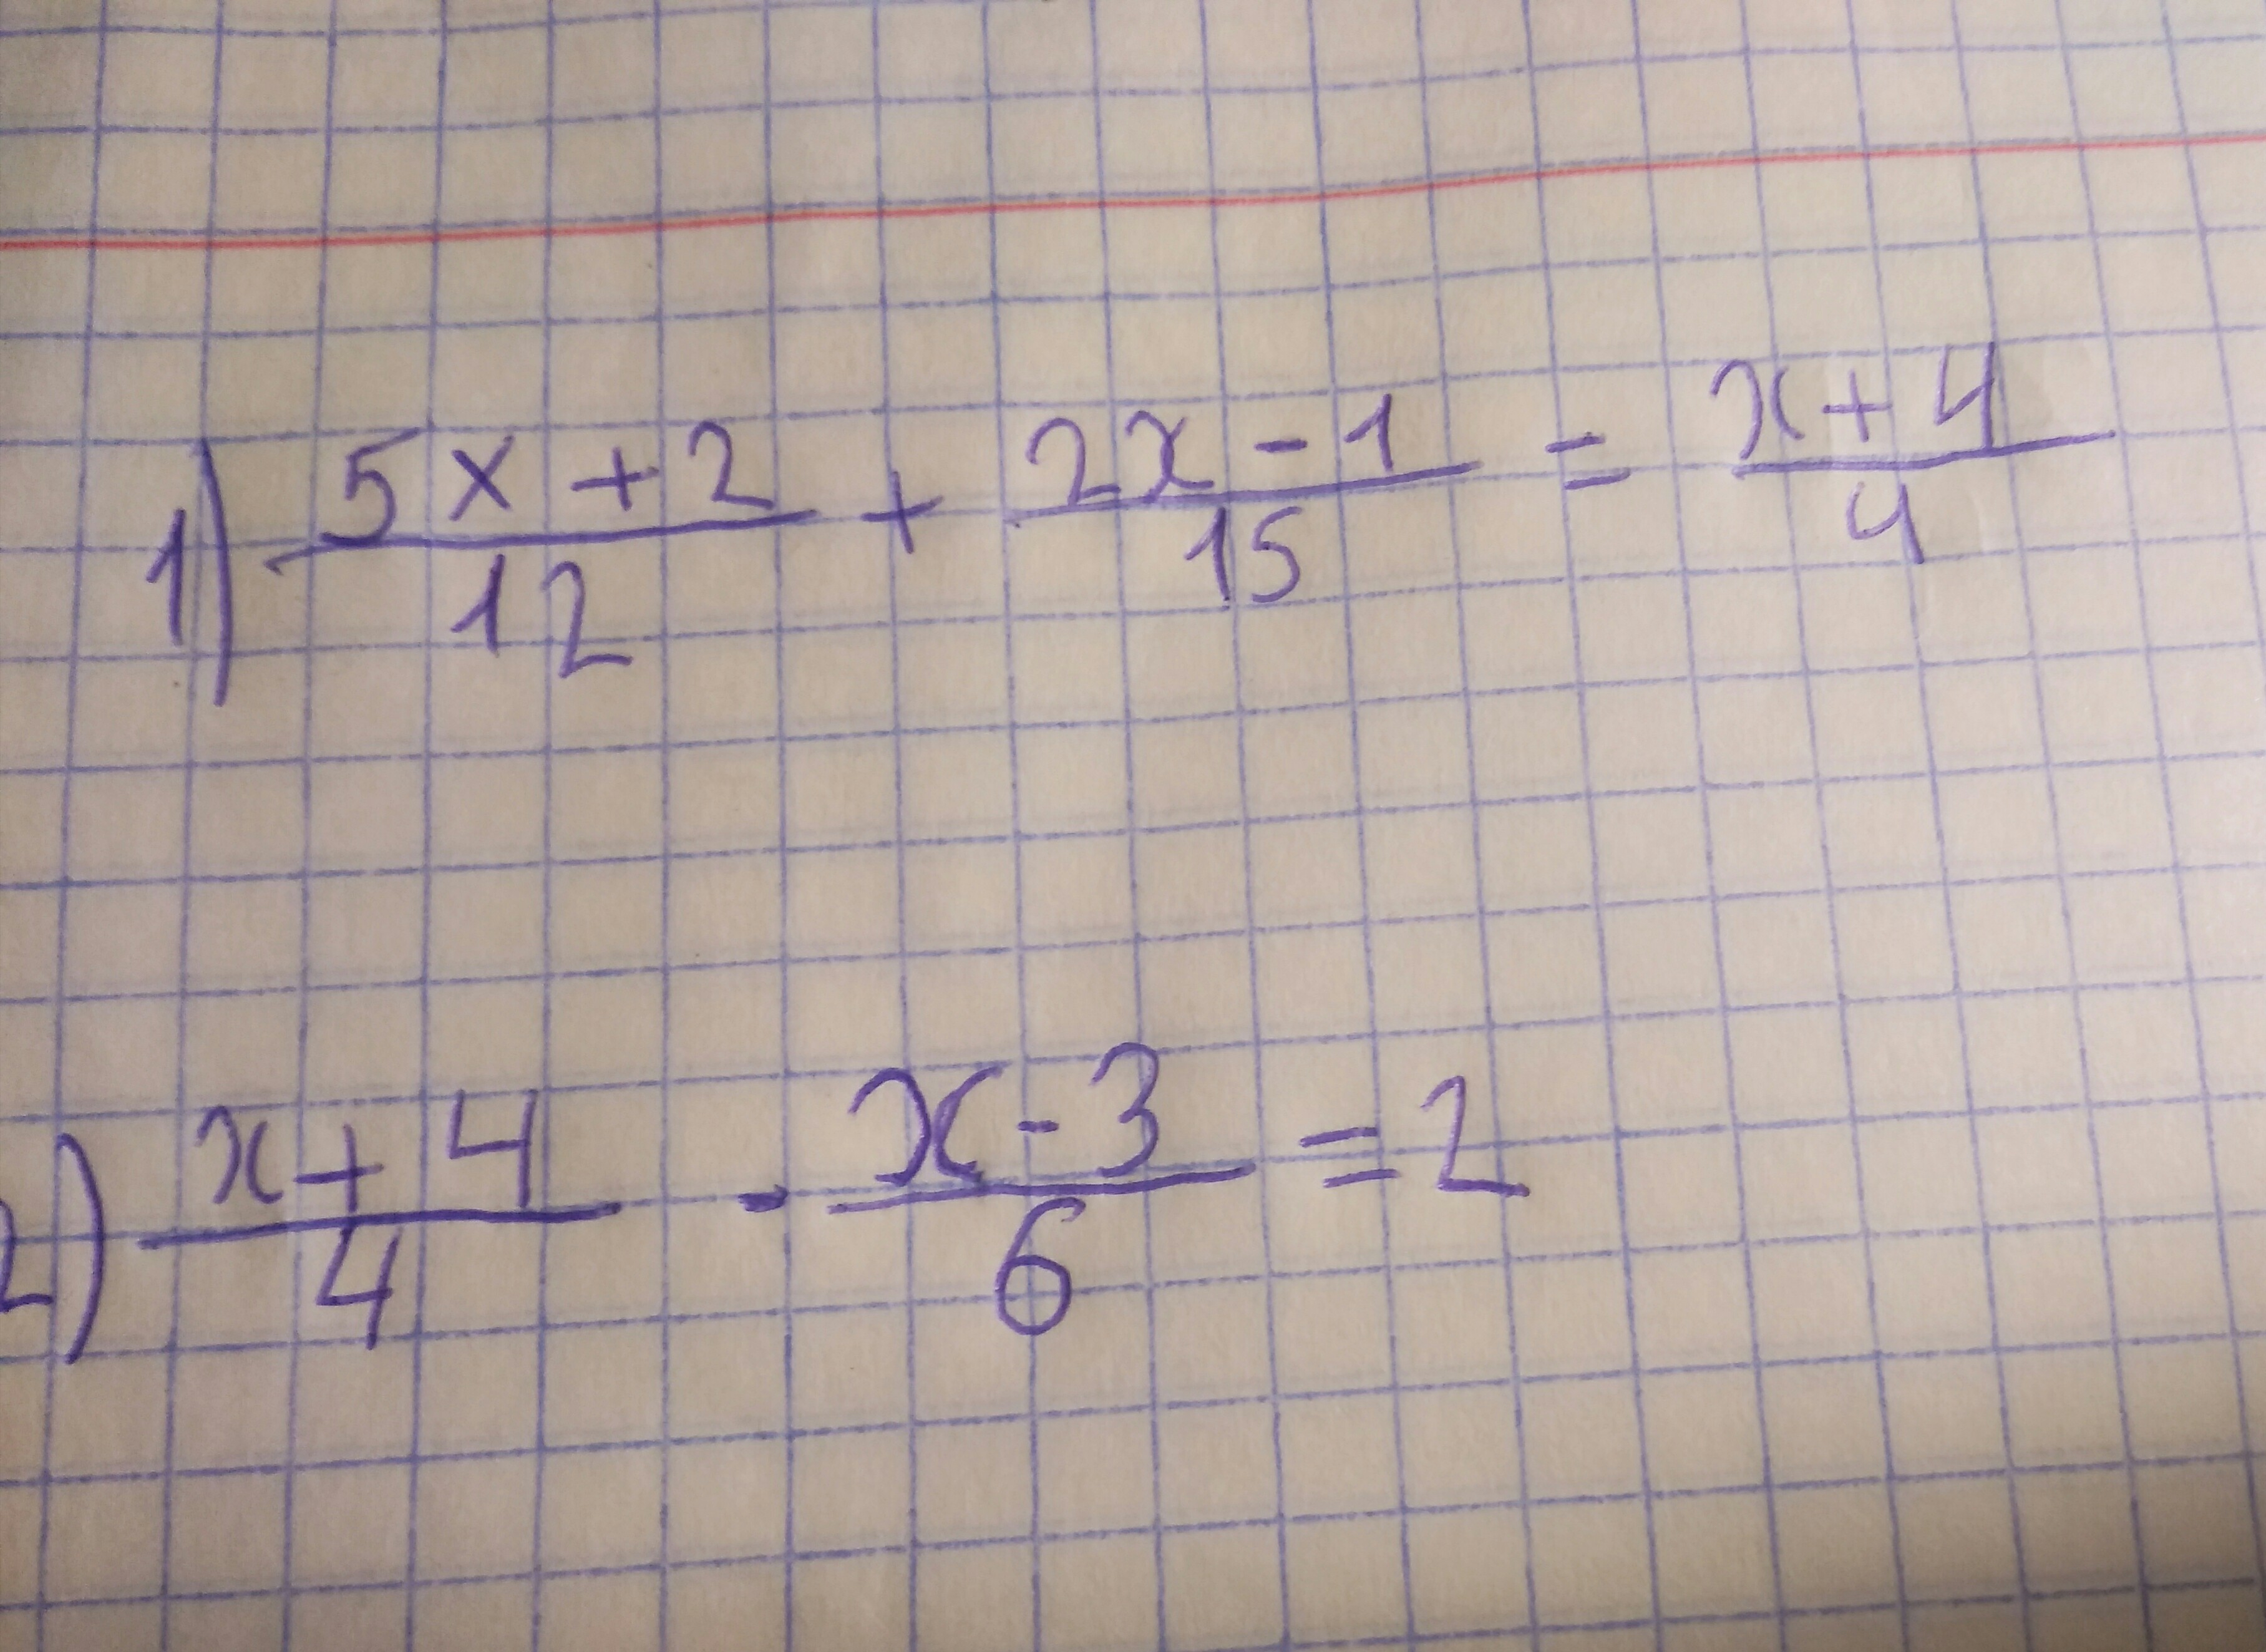 1) (5x + 2)/12 + (2x - 1)/15 = (x + 4)/4
2) (x + 4)/4 - (x - 3)/6 = 2